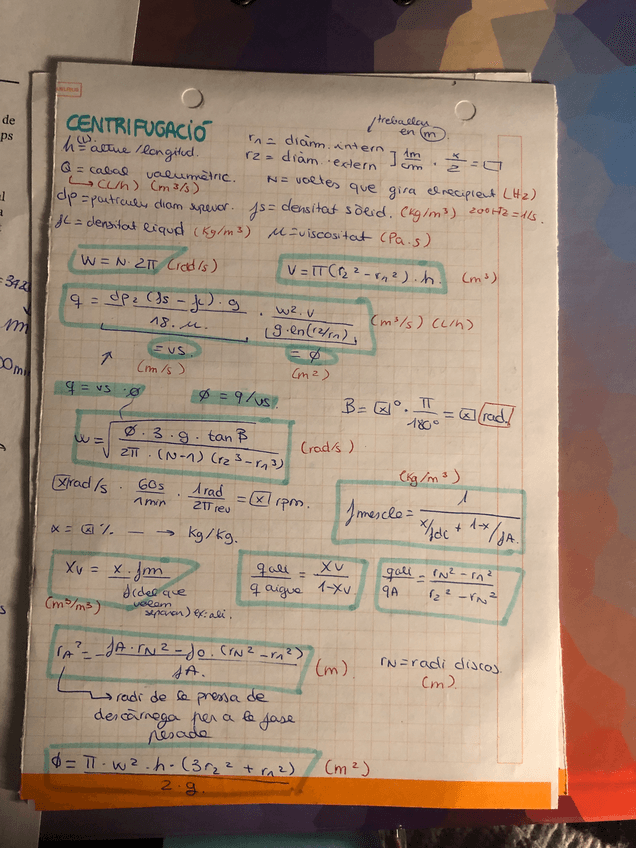 de
ps
= 312
m
CENTRIFUGACIÓ
treballar
en m
h = altura / longitud.
r1 = diàm. intern
r2 = diàm. extern ] 1m/cm · x/2 = □
Q = cabal volumètric.
(L/h) (m³/s)
N = voltes que gira el recipient (Hz)
dp = partícules diam superior. ρs = densitat sòlid. (kg/m³) 200Hz = 1/s.
ρL = densitat líquid (kg/m³) μ = viscositat (Pa.s)
W = N · 2π (rad/s)
V = π(r2² - r1²) · h. (m³)
q = dp² (ρs - ρL) · g / 18 · μ · w² · v / g · ln(r2/r1) (m³/s) (L/h)
= vs
(m/s)
= ϕ
(m²)
q = vs · ϕ
ϕ = q/vs.
B = [x]° · π/180° = [x] rad.
w = √ ϕ · 3 · g · tan B / 2π · (N-1) (r2³ - r1³) (rad/s)
[x] rad/s · 60s/1min · 1rad/2π rev = [x] rpm.
(kg/m³)
ρmescla = 1 / x/ρdc + 1-x/ρA.
x = [x] % — → kg/kg.
Xv = x · ρm / ρ(del que volem separar) ex: oli.
(m³/m³)
q oli / q aigua = Xv / 1-Xv
q oli / qA = rN² - r1² / r2² - rN²
rA² = ρA · rN² - ρo · (rN² - r1²) / ρA. (m)
rN = radi discos.
(m)
radi de la pressa de
descàrrega per a la fase
pesada
ϕ = π · w² · h · (3r2² + r1²) / 2 · g. (m²)